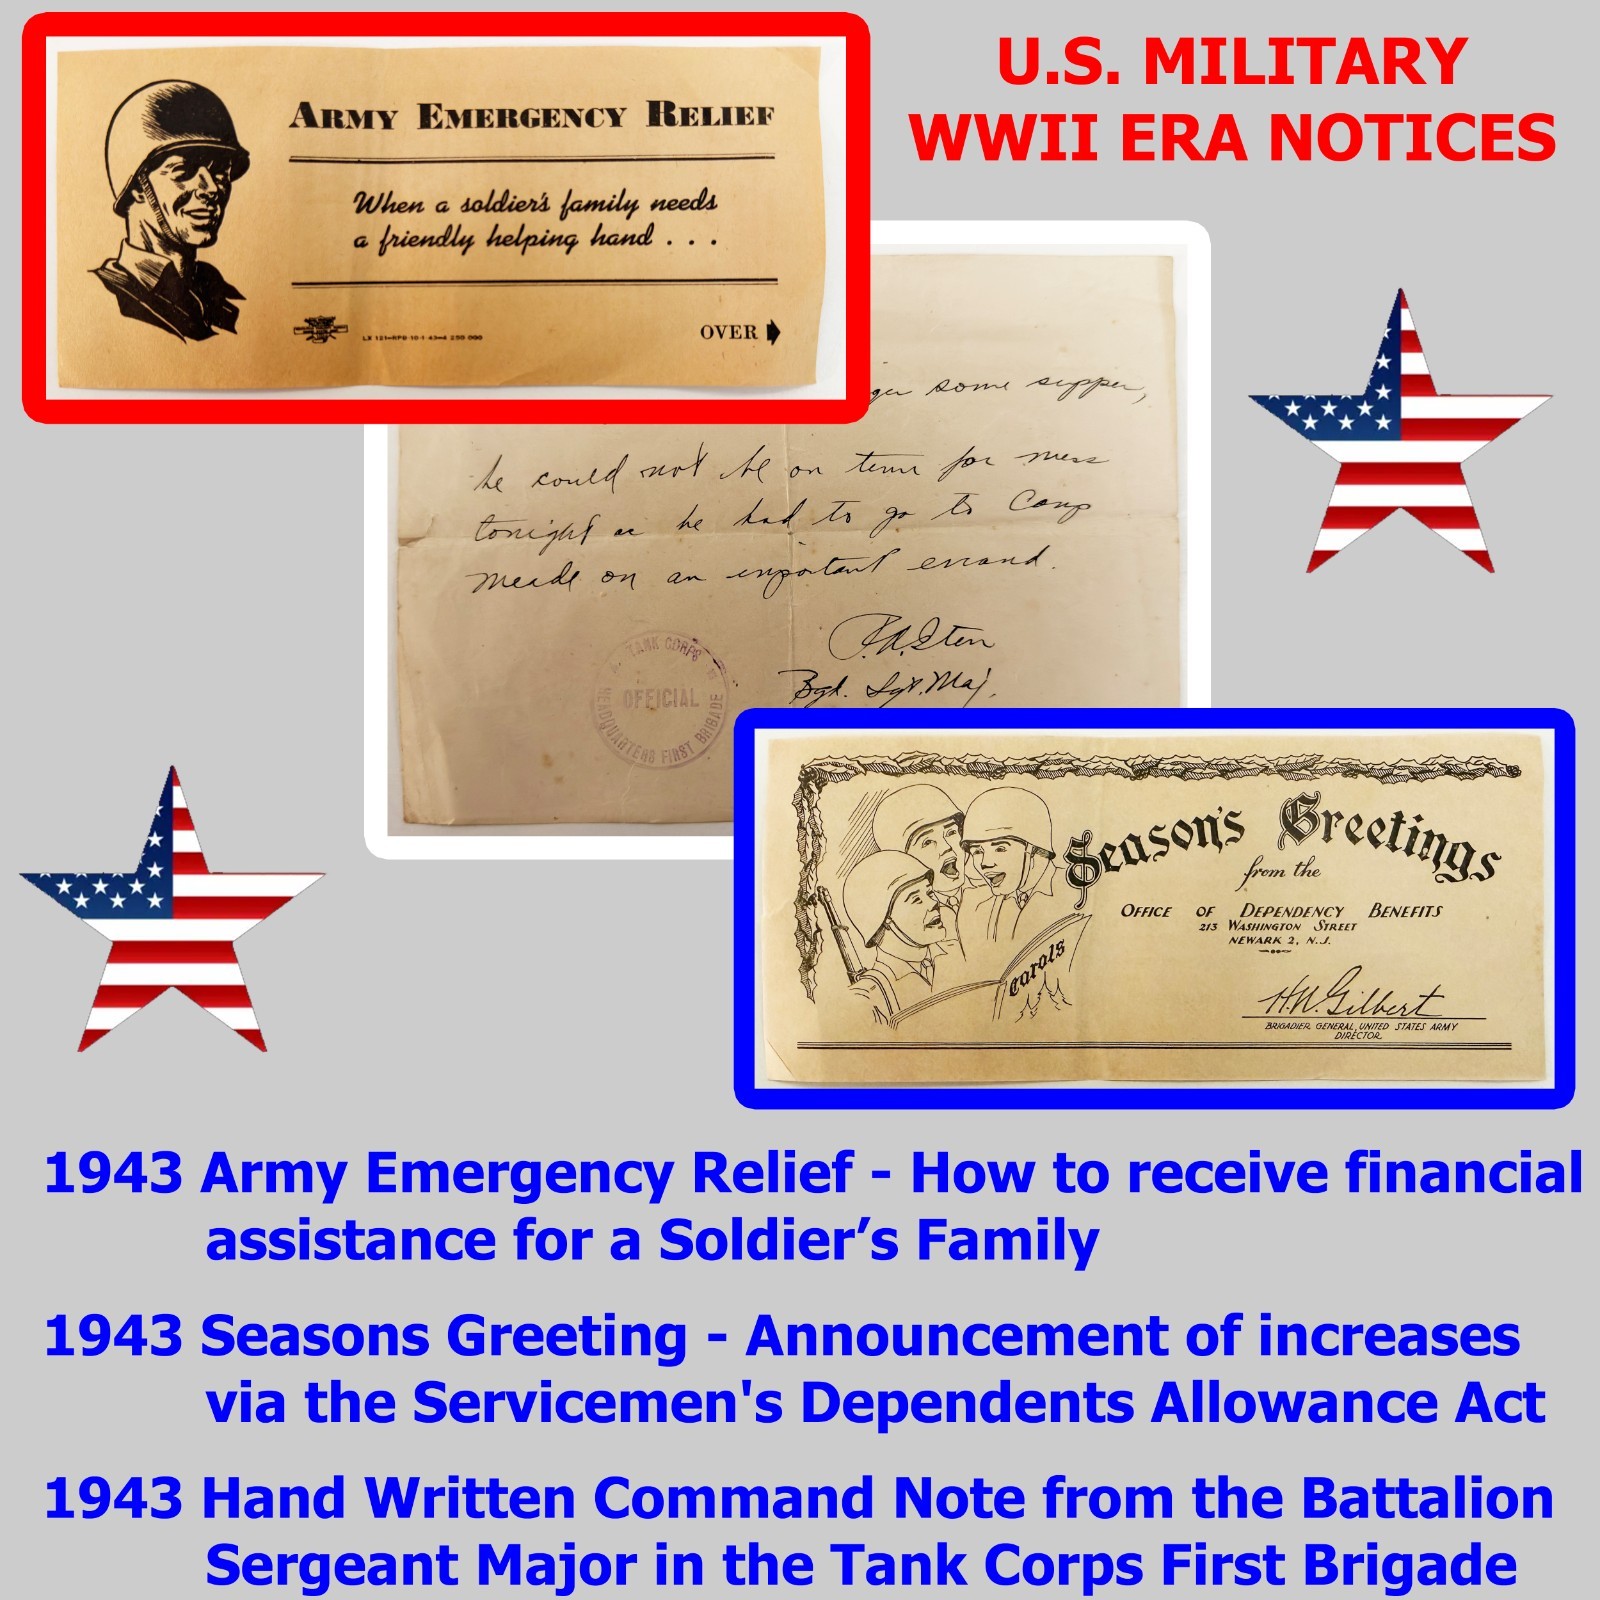 U.S. MILITARY
WWII ERA NOTICES
ARMY EMERGENCY RELIEF
When a soldier's family needs
a friendly helping hand . . .
OVER
some supper,
he could not be on time for mess
tonight as he had to go to Camp
Meade on an important errand.
Sgt. Maj.
TANK CORPS
OFFICIAL
HEADQUARTERS FIRST BRIGADE
Season's Greetings
from the
OFFICE OF DEPENDENCY BENEFITS
213 WASHINGTON STREET
NEWARK 2, N.J.
Carols
H.W. Gilbert
BRIGADIER GENERAL, UNITED STATES ARMY
DIRECTOR
1943 Army Emergency Relief - How to receive financial
assistance for a Soldier’s Family
1943 Seasons Greeting - Announcement of increases
via the Servicemen's Dependents Allowance Act
1943 Hand Written Command Note from the Battalion
Sergeant Major in the Tank Corps First Brigade